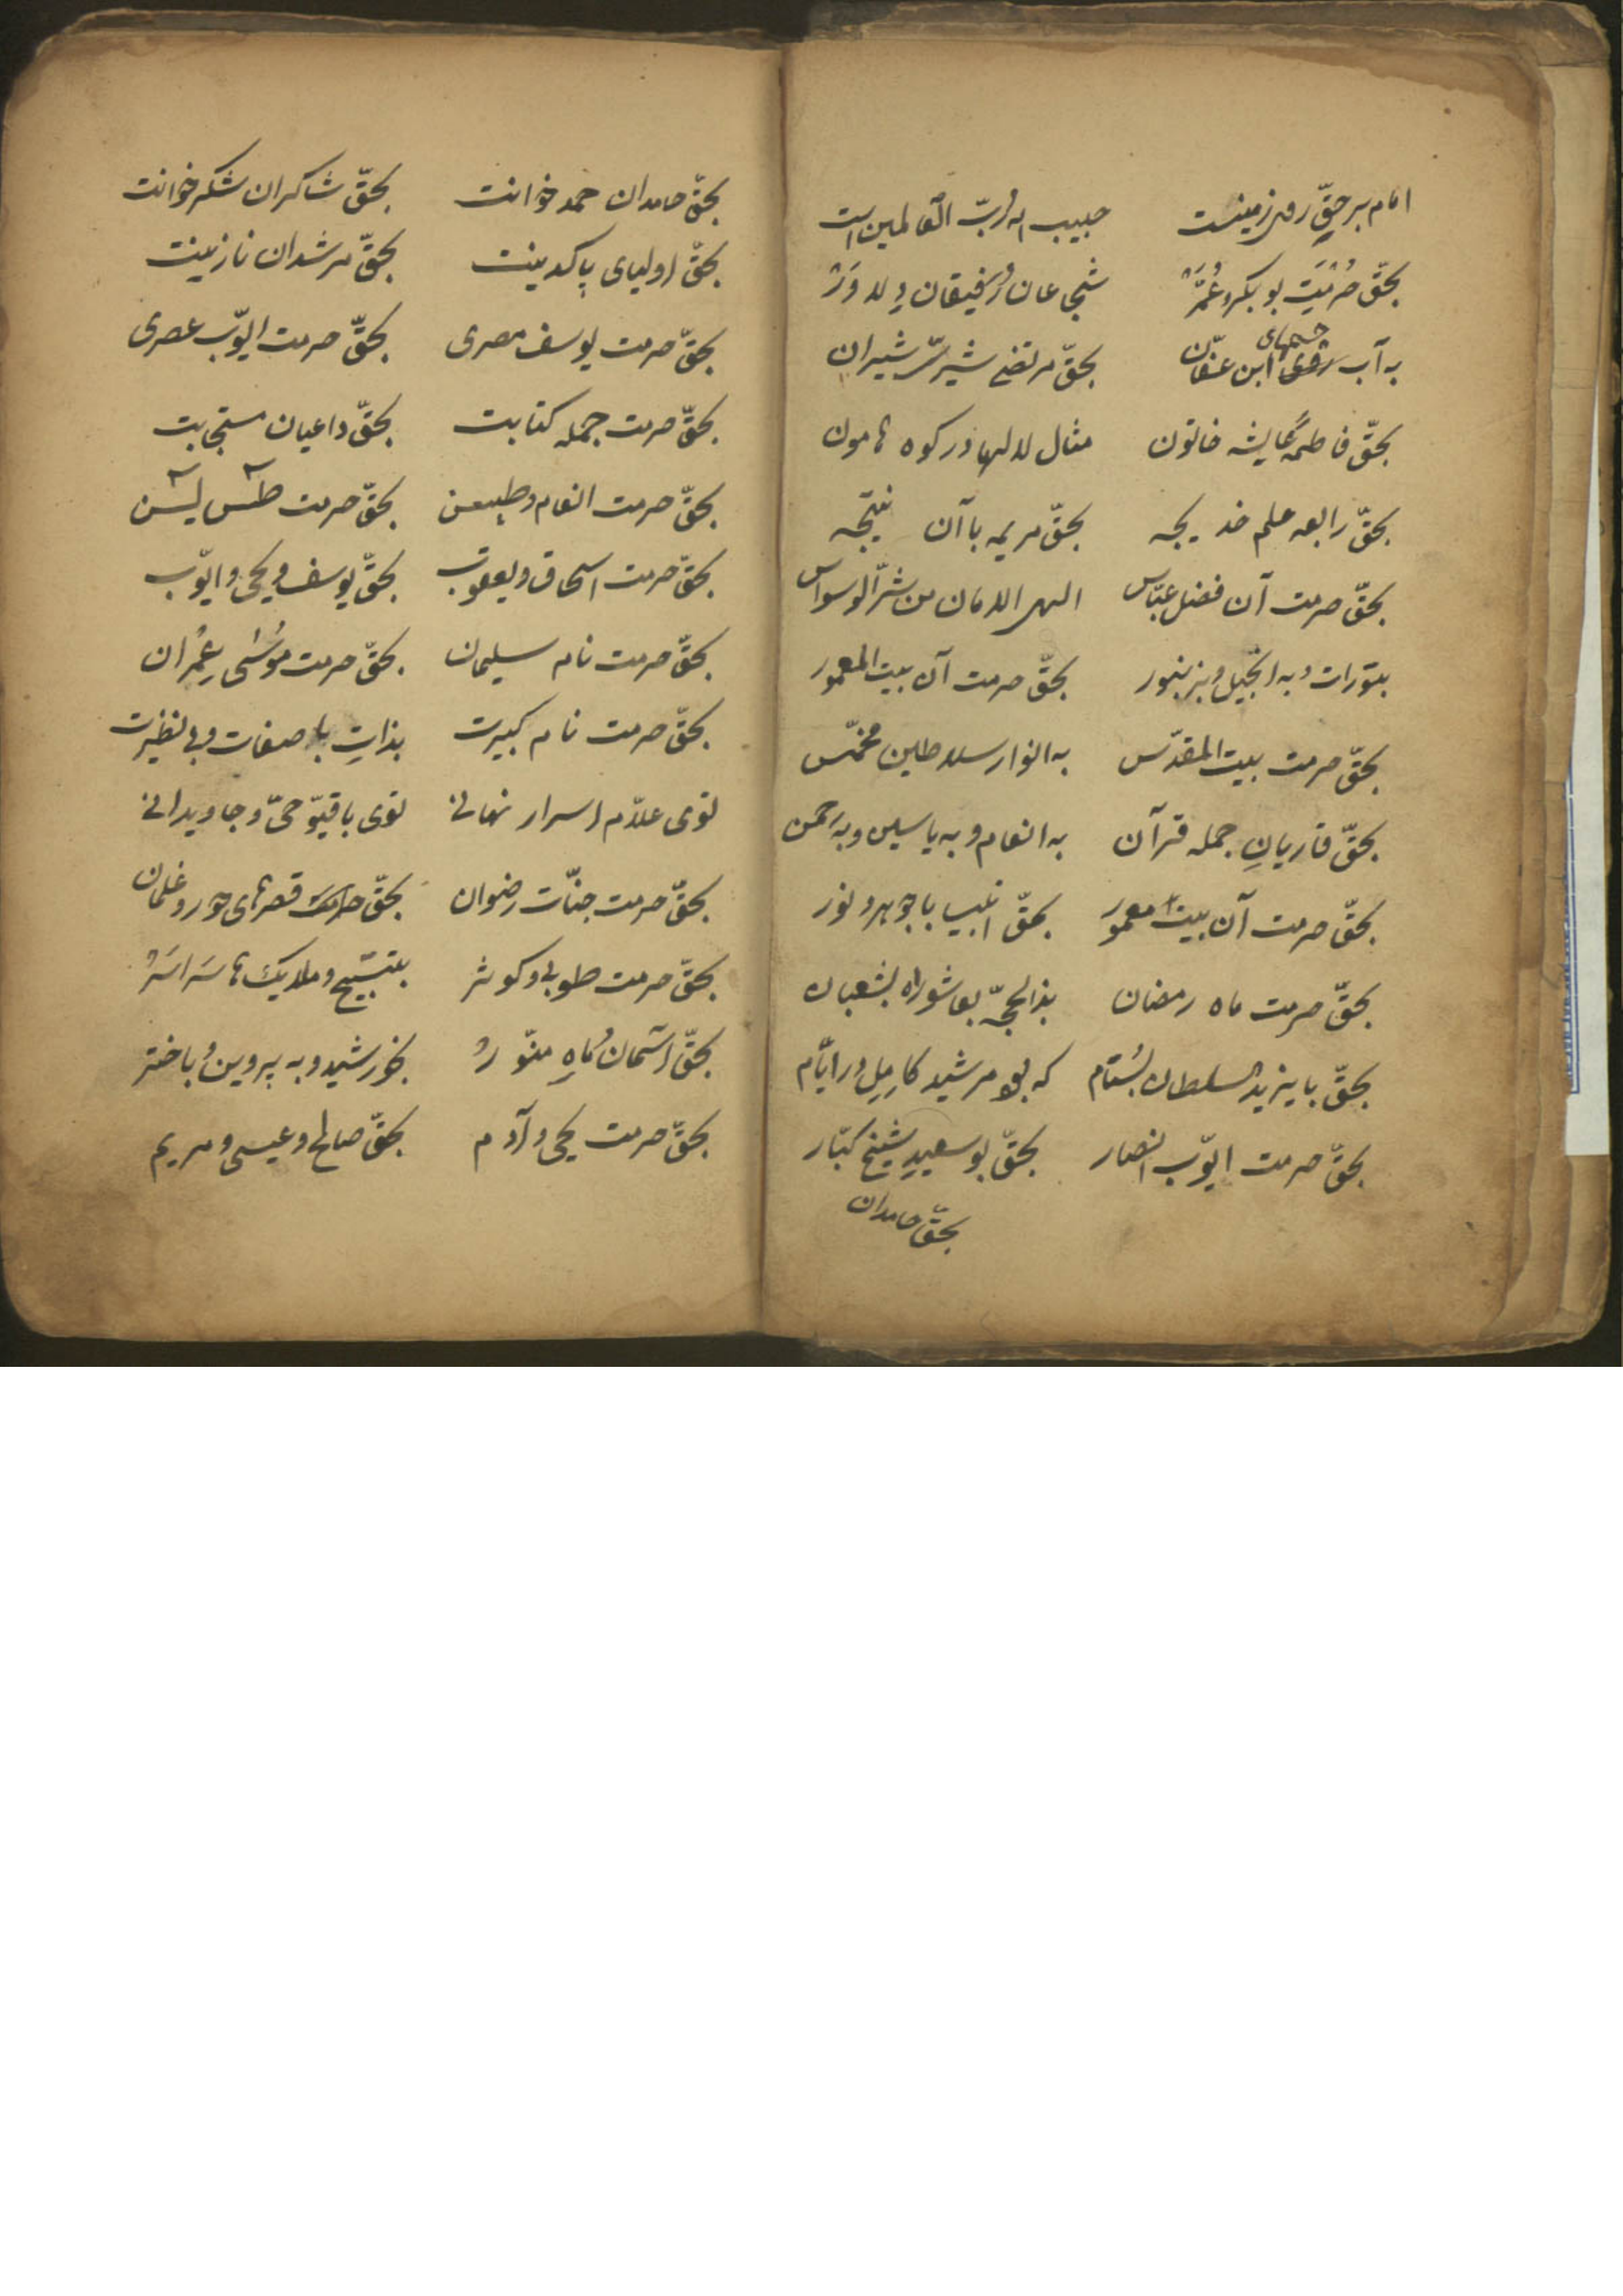 امام برحقّ روی زمینست حبیب ربّ العالمین است
بحقّ حُرْمَتِ بوبکر و عُمَرْ شجاعان رفیقان دلاوَرْ
به آب چشمهای ابن عفّان بحقّ مرتضی شیر شیران
بحقّ فاطمه عایشه خاتون مثال لالها در کوه هامون
بحقّ رابعه علم خدیجه بحقّ مریمه با آن نتیجه
بحقّ حرمت آن فضل عبّاس الهی الامان من شرّ الوسواس
بتورات و به انجیل و بزبور بحقّ حرمت آن بیت المعمور
بحقّ حرمت بیت المقدّس به انوار سلاطین مخمّس
بحقّ قاریانِ جمله قرآن به انعام و به یاسین و به رحمن
بحقّ حرمت آن بیت معمور بحقّ انبیا با جوهر و نور
بحقّ حرمت ماه رمضان بذالحجّه بعاشوراه بشعبان
بحقّ بایزید سلطان بُستام که بود مرشید کامِل در ایّام
بحقّ حرمت ایّوب انصار بحقّ بوسعیدِ شیخ کبّار
بحقّ حامدان
بحقّ حامدان حمد خوانت بحقّ شاکران شکر خوانت
بحقّ اولیای پاکدینت بحقّ مرشدان نازنینت
بحقّ حرمت یوسف مصری بحقّ حرمت ایّوب عصری
بحقّ حرمت جمله کتابت بحقّ داعیان مستجابت
بحقّ حرمت انعام و بحقّ حرمت طٓس یٓس
بحقّ حرمت اسحاق و یعقوب بحقّ یوسف و یحیی و ایّوب
بحقّ حرمت نام سلیمان بحقّ حرمت مُوسٰی عِمْران
بحقّ حرمت نام کبیرت بذاتِ با صفات و بی نظیرت
توی علاّم اسرار نهانی توی باقیّو حیّ و جاویدانی
بحقّ حرمت جنّات رضوان بحقّ قصرهای حور و غلمان
بحقّ حرمت طوبی و کوثر بتسبیح و ملایکَ ها سَراسَرْ
بحقّ آسمان و ماهِ منوّرْ بخورشید و به پروین و باختر
بحقّ حرمت یحیی و آدم بحقّ صالح و عیسی و مریم